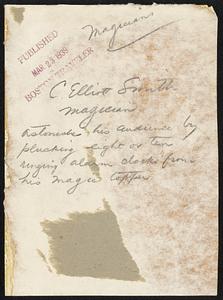 Magicians
PUBLISHED
MAR 23 1938
BOSTON TRAVELER
C Elliott Smith
Magician
astounds his audience by
plucking eight or ten
ringing alarm clocks from
his magic topper